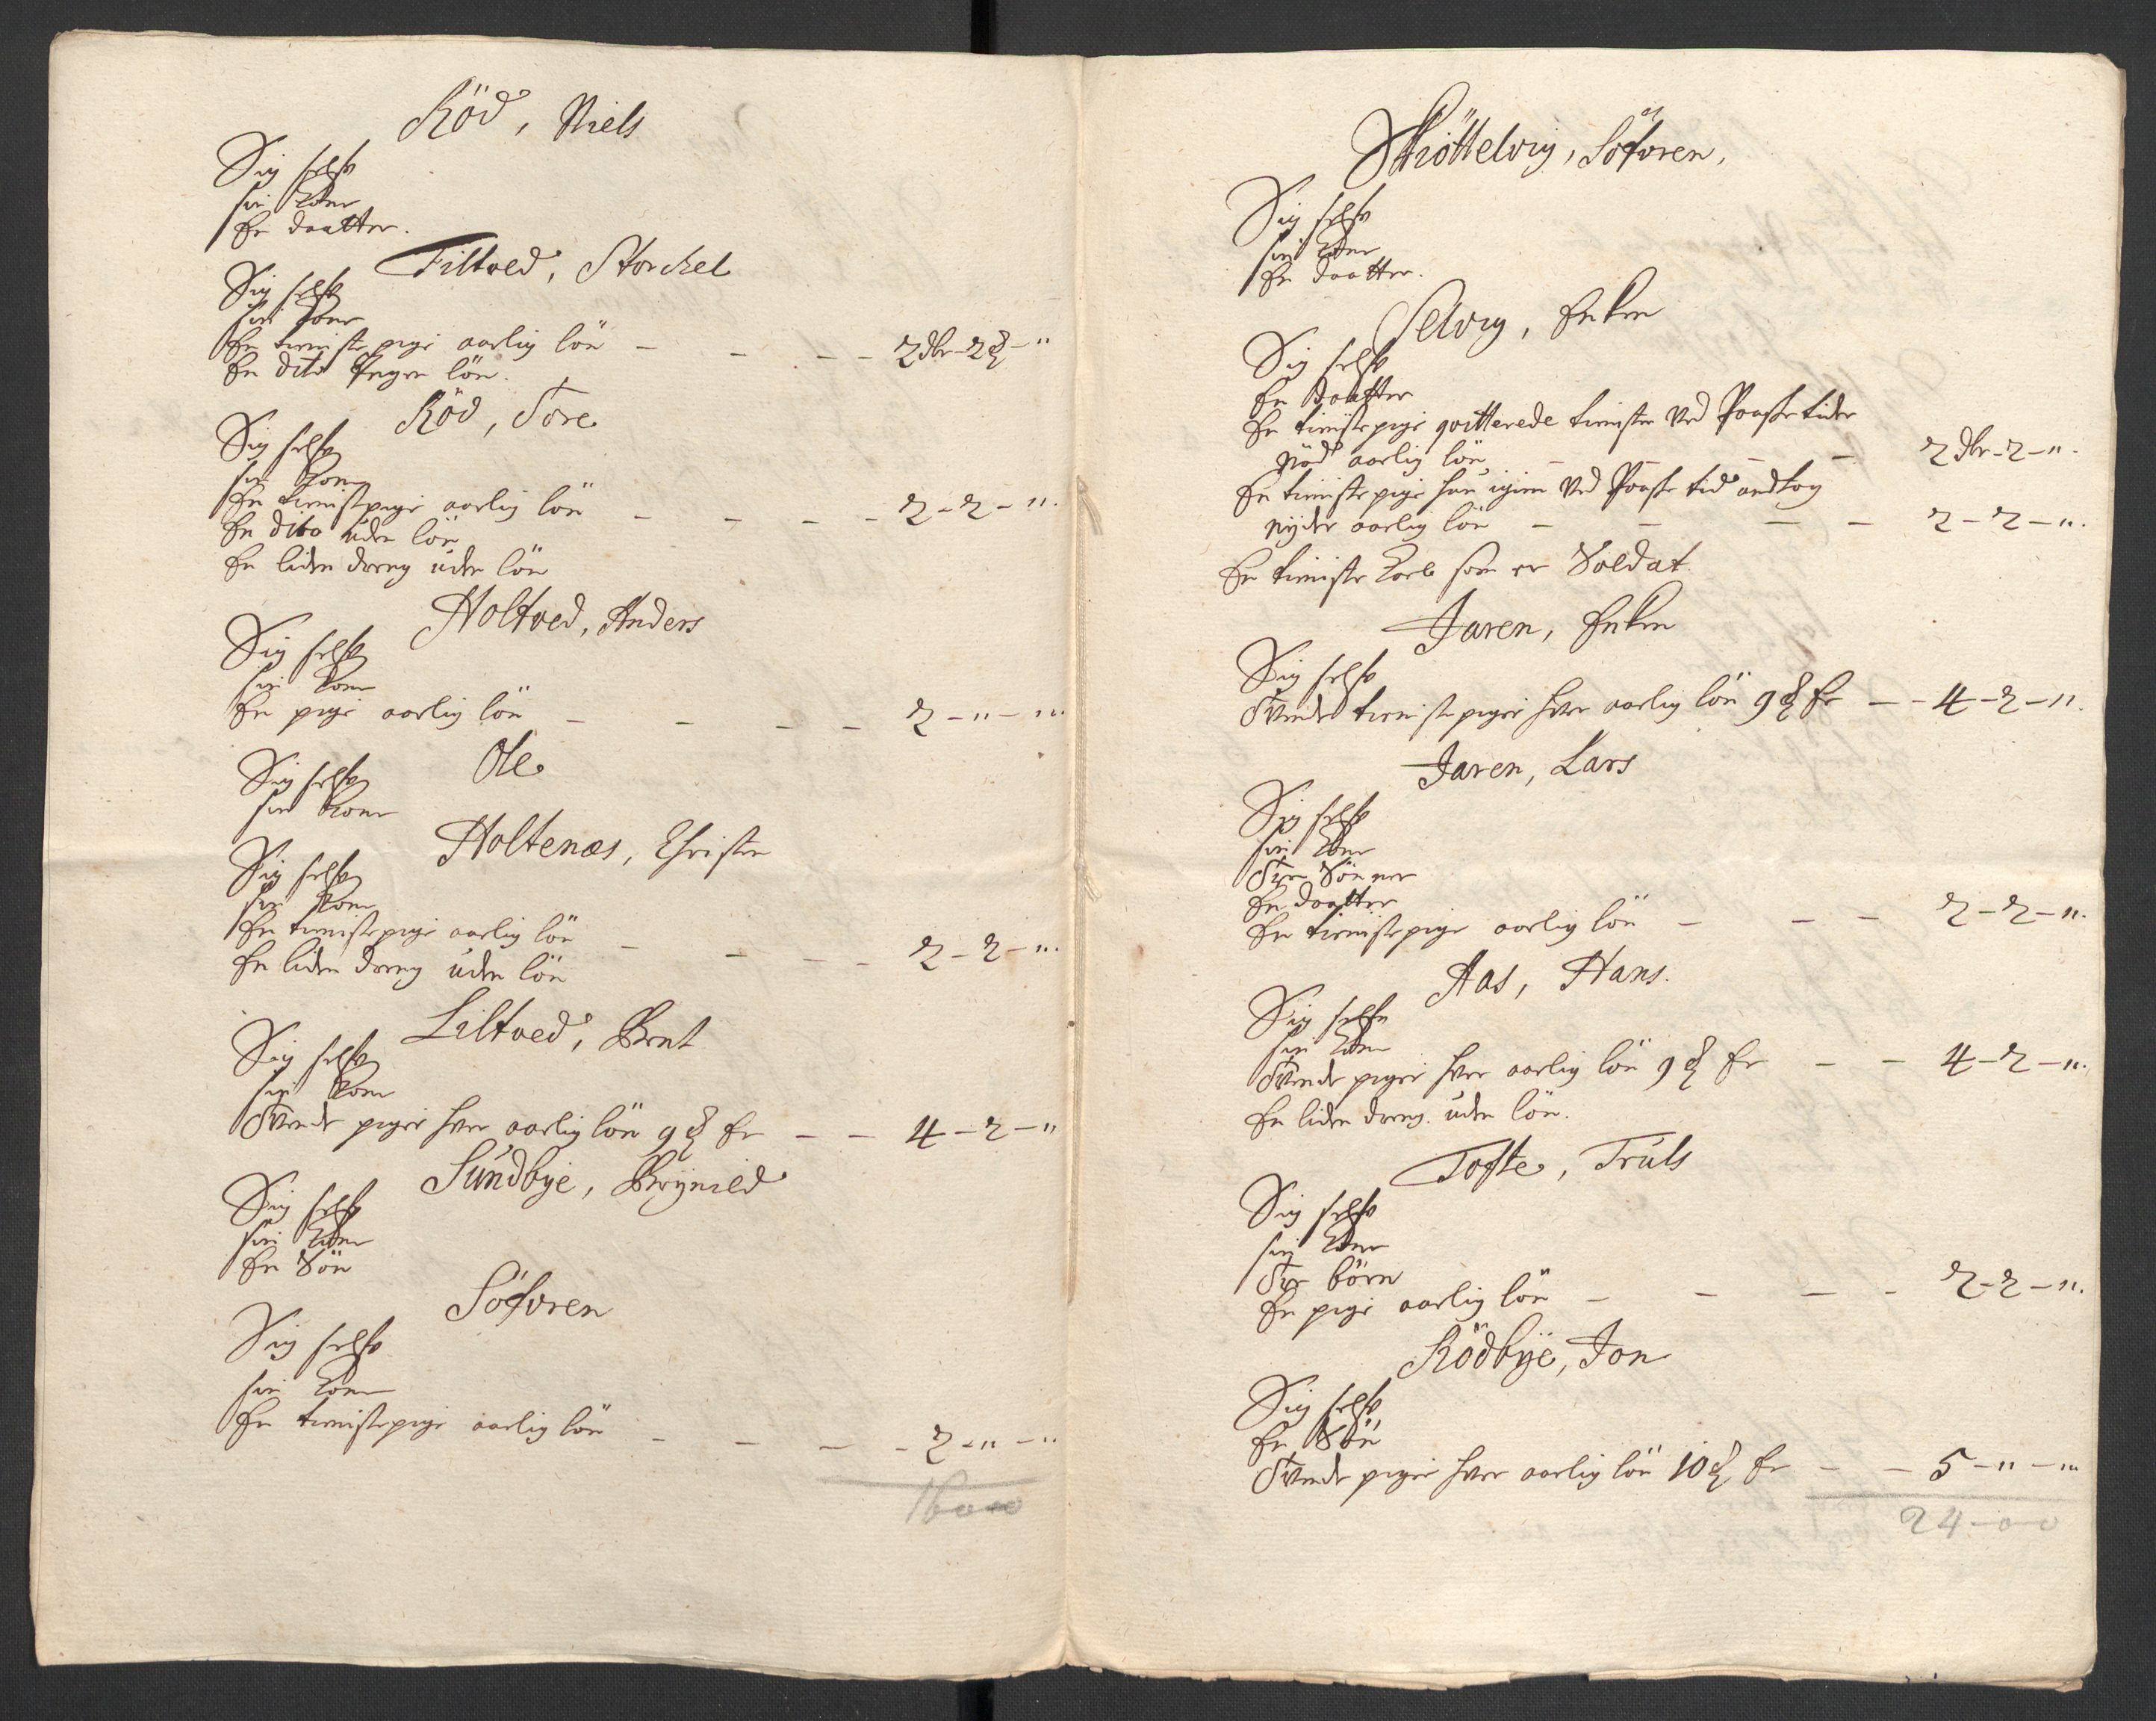 Röd, Niels
Sig selff
sin Kone
En daatter.
Filtved, Storckel
Sig selff
sin Kone
En tieniste pige aarlig lön - - - - 2 dlr - 2 ß - "
En dito Ingen lön.
Röd, Tore
Sig selff
sin Kone
En tienistpige aarlig lön - - - - 2 - 2 - "
En dito uden lön
En liden dreng uden lön
Holtved, Anders
Sig selff
sin Kone
En pige aarlig lön - - - - 2 - " - "
Ole
Sig selff
sin Kone
Holtenæs, Christen
Sig selff
sin Kone
En tienistepige aarlig lön - - - - 2 - 2 - "
En liden dreng uden lön
Liltved, Brent
Sig selff
sin Kone
Tvende piger hver aarlig lön 9 ß Er - - 4 - 2 - "
Sundbye, Brynild
Sig selff
sin Kone
En Sön
Söfvren
Sig selff
sin Kone
En tienistepige aarlig lön - - - - 2 - " - "
16 0 0
Skiöttelvig, Söfvren,
Sig selff
sin Kone
En daatter.
Selvig, Enken
Sig selff
En Daatter
En tienistepige qvitterede tienisten ved Paaske tider
nöd aarlig lön - - - - 2 dlr - 2 - "
En tieniste pige hun igien ved Paaske tid andtog
nyder aarlig lön - - - - 2 - 2 - "
En tieniste Karl som er Soldat
Jaren, Enken
Sig selff
Tvende tieniste piger hver aarlig lön 9 ß Er - - 4 - 2 - "
Jaren, Lars
Sig selff
sin Kone
Tve Sönner
En daatter
En tienistepige aarlig lön - - - 2 - 2 - "
Aas, Hans.
Sig selff
sin Kone
Tvende piger hver aarlig lön 9 ß Er - - 4 - 2 - "
En liden dreng. uden lön.
Tofte, Truls
Sig selff
sin Kone
Tve börn
En pige aarlig lön - - - - 2 - 2 - "
Rödbye, Jon
Sig selff
En Sön
Tvende piger hver aarlig lön 10 ß Er - - 5 - " - "
24 - 0 - 0